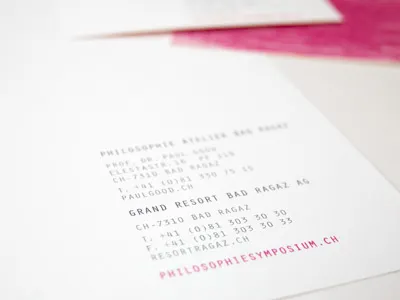 PHILOSOPHIE ATELIER BAD RAGAZ
PROF. DR. PAUL GOOD
CH-7310 BAD RAGAZ
T. +41 (0)81 330 75 15
PAULGOOD.CH
GRAND RESORT BAD RAGAZ AG
CH-7310 BAD RAGAZ
T. +41 (0)81 303 30 30
F. +41 (0)81 303 30 33
RESORTRAGAZ.CH
PHILOSOPHIESYMPOSIUM.CH